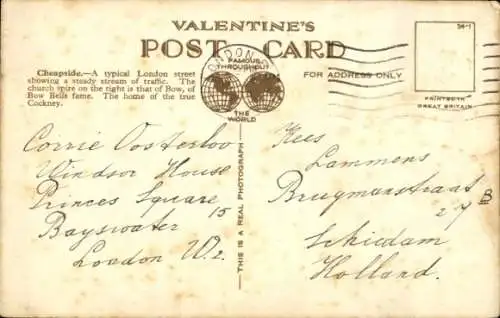 VALENTINE'S
POST CARD
FAMOUS
THROUGHOUT
THE
WORLD
FOR ADDRESS ONLY
PRINTED IN
GREAT BRITAIN
Cheapside.—A typical London street
showing a steady stream of traffic. The
church spire on the right is that of Bow, of
of Bow Bells fame. The home of the true
Cockney.
THIS IS A REAL PHOTOGRAPH
Corrie Oosterloo
Windsor House
Princes Square 15
Bayswater
London W2.
Kees
Lammens
Brugmanstraat
27 B
Schiedam
Holland.